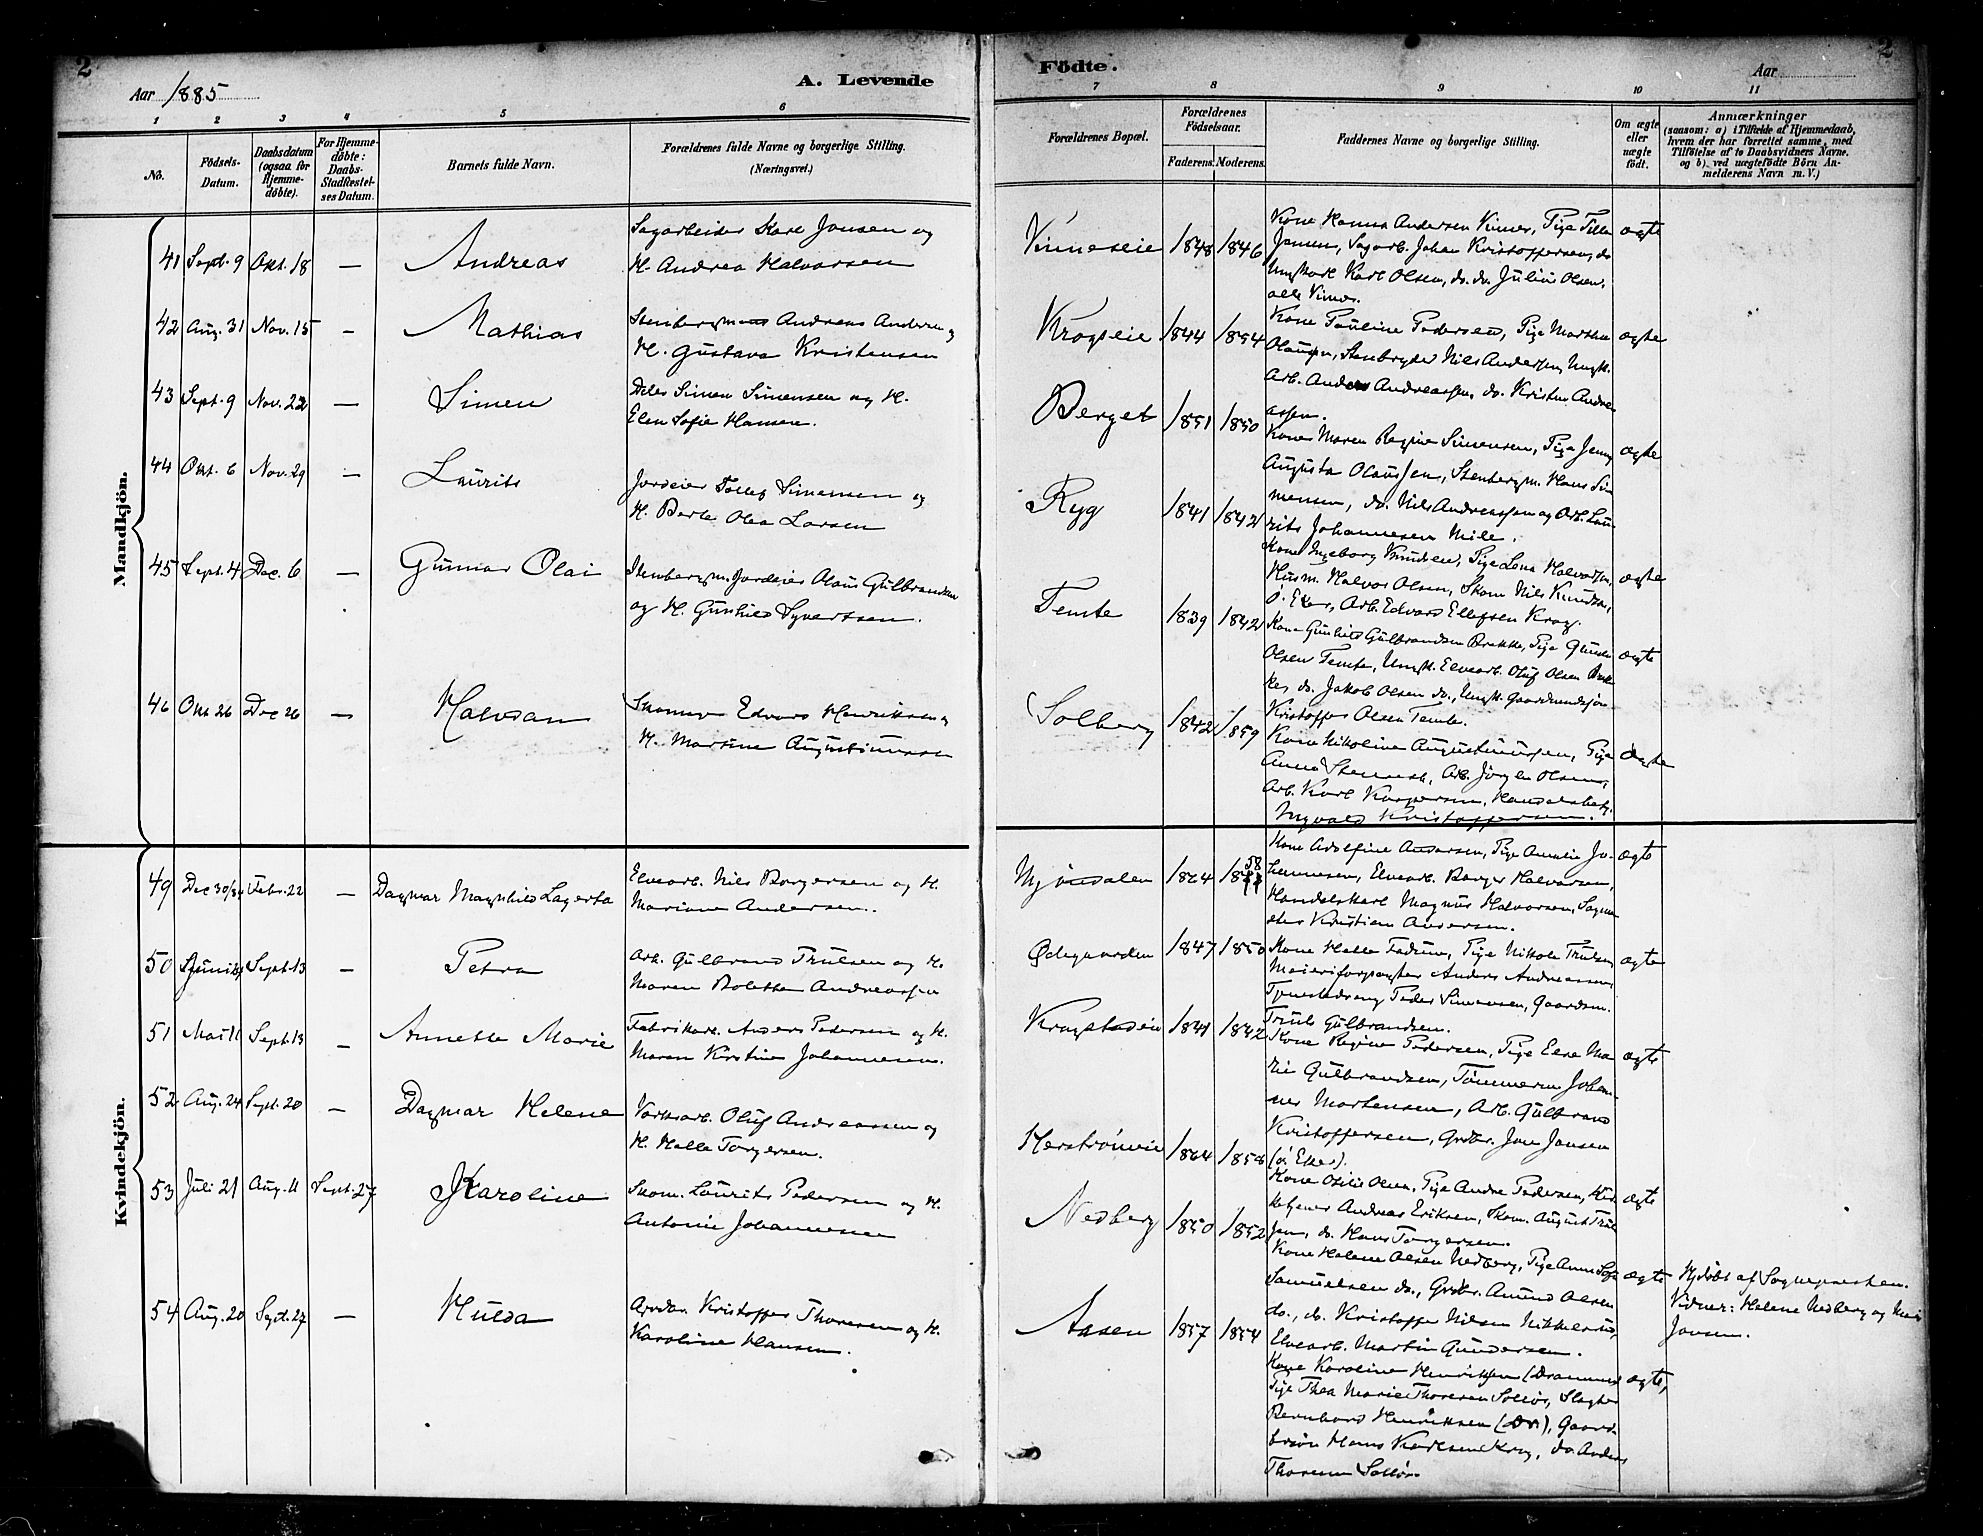 2
Aar 1885
A. Levende
1 2 3 4 5 6
No.
Födsels-Datum.
Daabsdatum (ogsaa for Hjemmedöbte).
For Hjemmedöbte: Daabs-Stadfæstelses Datum.
Barnets fulde Navn.
Forældrenes fulde Navne og borgerlige Stilling. (Næringsvei.)
Mandkjön.
41 Sept. 9 Okt. 18 — Andreas
Sagarbeider Karl Jansen og
H. Andrea Halvorsen
42 Aug. 31 Nov. 15 — Mathias
Stenbergmand Andreas Andersen og
H. Gustava Kristensen
43 Sept. 9 Nov. 22 — Simen
Simen Simensen og H.
Elen Sofie Hansen.
44 Okt. 6 Nov. 29 — Laurits
Jordeier Tollef Simensen og
H. Berte Olea Larsen
45 Sept. 4 Dec. 6 — Gunnar Olai
Stenbergm. Jordeier Olaus Gulbrandsen
og H. Gunhild Syvertsen.
46 Okt 26 Dec 26 — Halvdan
Edvard Henriksen og
H. Martine Augustinussen
Kvindekjön.
49 Dec 30/84 Febr. 22 — Dagmar Magnhild Lagerta
Elvearb. Nils Borgersen og H.
Mariane Andersen.
50 Sept. 13 — Petra
Arb. Gulbrand Trulsen og H.
Maren Bolette Andreassen
51 Mai 11 Sept. 13 — Annette Marie
Fabrikarb. Anders Pedersen og H.
Maren Kirstine Johannesen.
52 Aug. 24 Sept. 20 — Dagmar Helene
Oluf Andreassen og
H. Helle Torgersen.
53 Juli 21 Aug. 11 Sept. 27 Karoline
Skom. Laurits Pedersen og H.
Antonie Johannesen
54 Aug. 20 Sept. 27 — Hulda
Kristoffer Thoresen og H.
Karoline Hansen.
Födte.
Aar
2
7 8 9 10 11
Forældrenes Bopæl.
Forældrenes Födselsaar.
Faderens. Moderens.
Faddernes Navne og borgerlige Stilling.
Om ægte eller uægte födt.
Anmærkninger
(saasom: a) i Tilfælde af Hjemmedaab,
hvem der har forrettet samme, med
Tilföielse af to Daabsvidners Navne.
og b) ved uægtefödte Börn An-
melderens Navn m. V.)
1848 1846
Kone Hanna Andersen Vinnes, Pige
Jansen, Sagarb. Johan Kristoffersen, do
Ungkarl Karl Olsen, do. do. Julius Olsen,
alle Vinnes.
ægte
Krogseie 1844 1854
Kone Pauline Pedersen, Pige Marthe
Olausen, Stenbryder Nils Andersen, Ungk.
Arb. Anders Andreassen, do. Kristen Andre-
assen.
ægte
Berget 1851 1850
Kone Maren Regine Simensen, Pige Jenny
Augusta Olaussen, Stenbergm. Hans Si-
mensen, do. Nils Andreassen og Arb. Lau-
rits Johannesen Mile.
ægte
Ryg 1841 1842
Kone Ingeborg Knudsen, Pige Lena Halvorsen,
Husm. Halvor Olsen, Skom Nils Knudsen,
ö. Eker, Arb. Edvard Ellefsen Krog.
ægte
Temte 1839 1842
Kone Gunhild Gulbrandsen Brekke, Pige
Olsen Temte, Ungk. Elvearb. Oluf Olsen
do. Jakob Olsen do., Ungk.
Kristoffer Olsen Temte.
ægte
Solberg 1842 1859
Kone Nikoline Augustinussen, Pige
Anna Arb. Jörgen Olsen,
Arb. Karl Kaspersen,
Ingvald Kristoffersen.
ægte
Mjöndalen 1864 1858
Kone Adolfine Andersen, Pige Amalie Jo-
hannesen, Elvearb. Borger Halvorsen,
Handelskarl Magnus Halvorsen,
Kristian Andersen.
ægte
Ødegaarden 1847 1850
Kone Helle Fadum, Pige Nikole Trulsen
Meieriforpagter Anders Andreassen,
Tjenestedreng Peder Simensen, Gaardm.
Truls Gulbrandsen.
ægte
1841 1842
Kone Regine Pedersen, Pige Else Ma-
rie Gulbrandsen, Tömmerm Johan-
nes Mortensen, Arb. Gulbrand
Kristoffersen, Grdbr. Jon Jansen
(ö. Eker).
ægte
1864 1858
Kone Otilie Olsen, Pige Andrea Pedersen,
Andreas Eriksen, Skom. August Trul-
sen, do. Hans Torgersen.
ægte
Nedberg 1850 1852
Kone Helene Olsen Nedberg, Pige Anne Sofie
Samuelsen do., Grdbr. Amund Olsen
do., do. Kristoffer Nilsen
Elvearb. Martin Gundersen.
ægte
Hjdöbt af Sognepresten.
Vidner: Helene Nedberg og
Jansen.
Aasen 1857 1854
Kone Karoline Henriksen (Drammen)
Pige Thea Marie Thoresen Solliös, Slagter
Bernhard Henriksen (Dr.), Gaard-
bröi Hans Karlsen Krog, do. Anders
Thoresen
ægte,